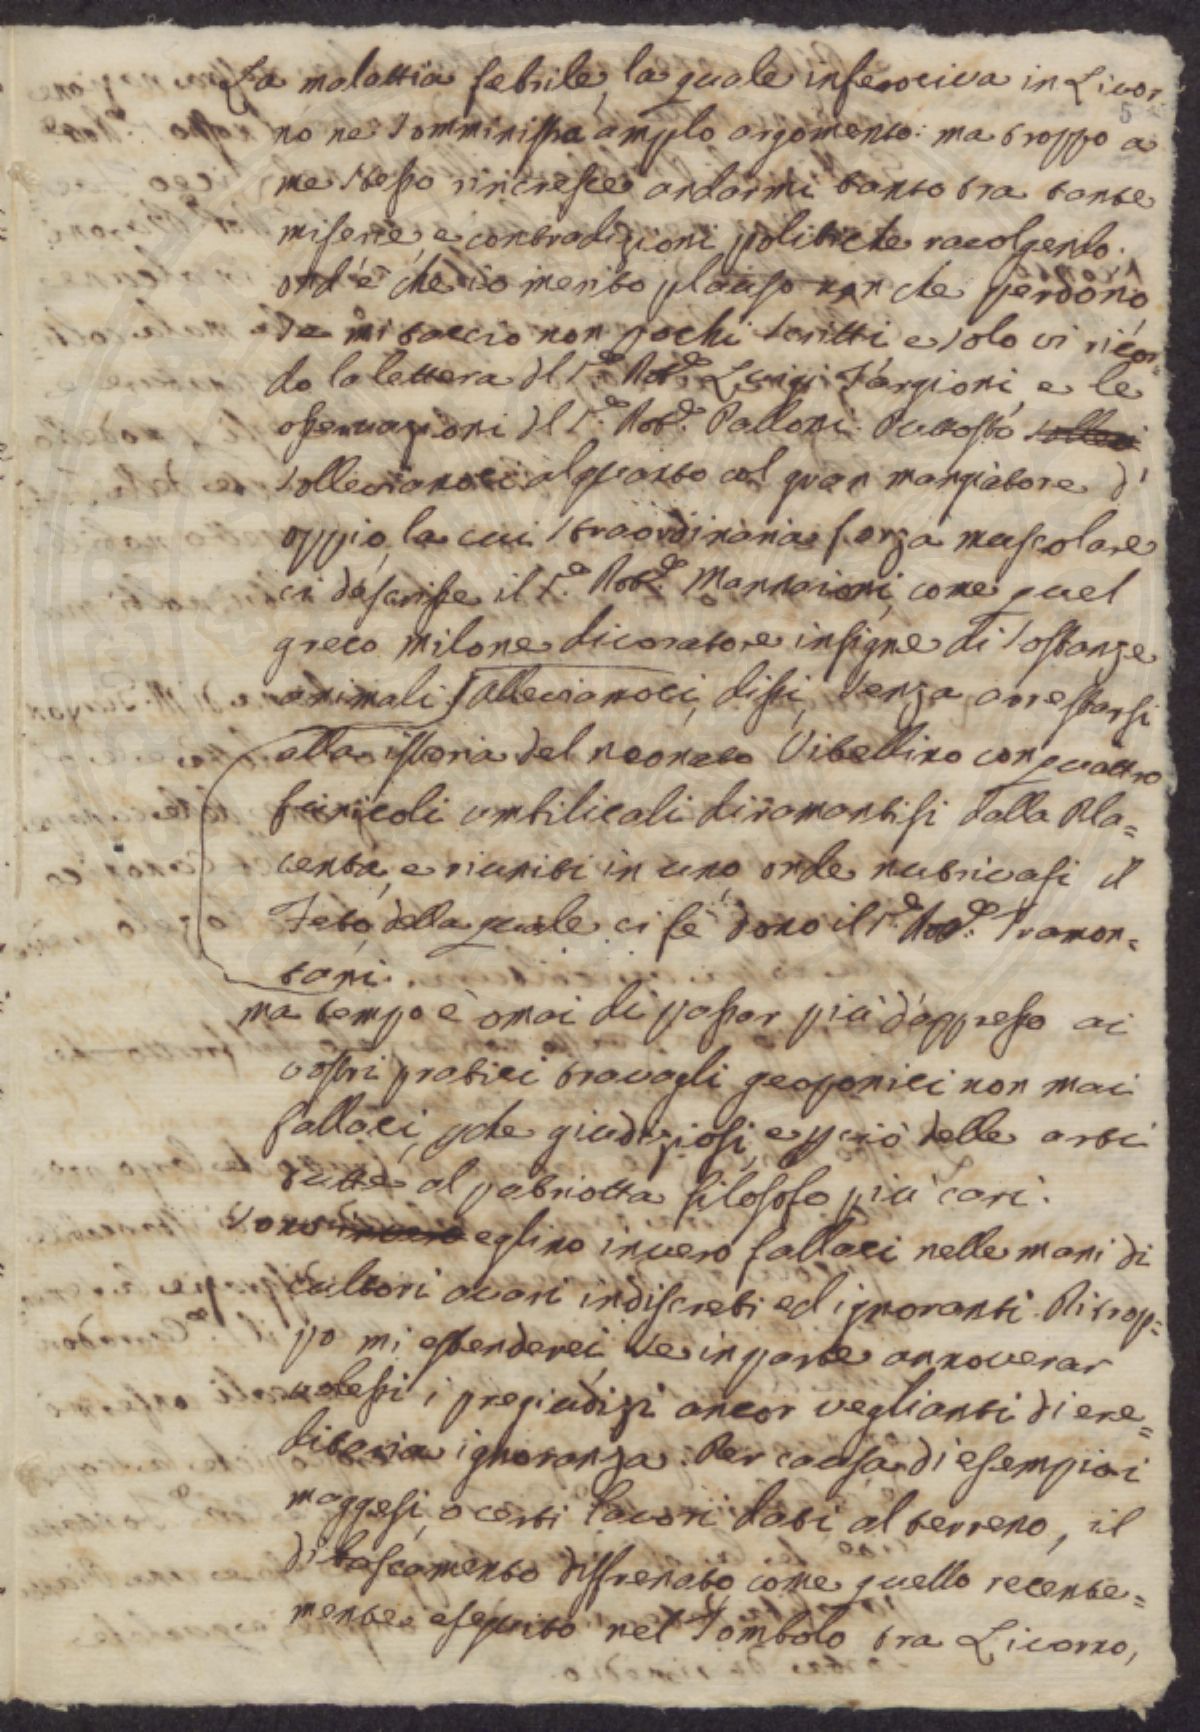 La malattia febrile, la quale inferociva in Livor
5
no ne somministra amplo argomento: ma troppo a
me stesso rincresce andarmi tanto tra tante
miserie, e contradizioni politiche racolgendo.
ond'è che io merito plauso non che perdono
se mi taccio non pochi scritti e solo vi ricor-
do la lettera del Sr. Dotr. Luigi Targioni, e le
osservazioni del Sr. Dotr. Palloni. Piuttosto sollevi
sollevianoci alquanto col gran mangiatore d'
oppio, la cui straordinaria forza muscolare
ci descrisse il Sr. Dotr. Mannaioni, come quel
greco milone divoratore insigne di sostanze
animali. Sollevianoci, dissi, senza arrestarsi
alla istoria del neonato Vitellino con quattro
funicoli umbilicali diramantisi dalla Pla=
centa, e riuniti in uno, onde nutrivasi il
Feto, della quale ci fè dono il Sr. Dotr. Tramon=
tani.
ma tempo è omai di passar più d'appresso ai
vostri pratici travagli geoponici non mai
fallaci, pche giudiziosi, e pciò delle arti
tutte al patriotta filosofo più cari.
Sono invero eglino invero fallaci nelle mani di
cultori avari indiscreti ed ignoranti. Pitrop=
po mi estenderei, se in parte annoverar
volessi i pregiudizi ancor veglianti di ere=
ditaria ignoranza. Per causa di esempio i
maggesi, o certi lavori dati al terreno, il
diboscamento disfrenato, come quello recente=
mente eseguito nel Tombolo tra Livorno,